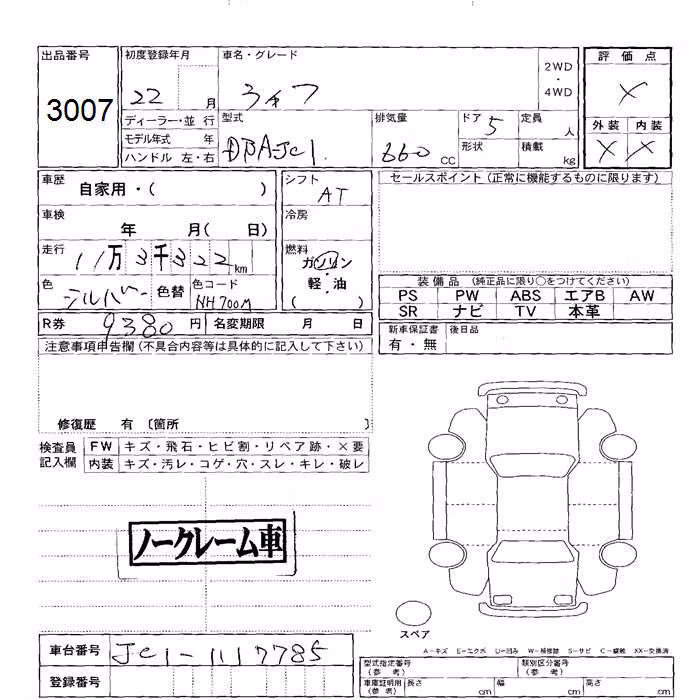 出品番号 初度登録年月 車名・グレード 2WD・4WD 評価点
3007 22 月 ライフ X
ディーラー・並行 型式 排気量 ドア 5 定員 人 外装 内装
モデル年式 年 DBA-JC1 660 CC 形状 積載 kg X X
ハンドル 左・右
車歴 自家用・( ) シフト AT セールスポイント(正常に機能するものに限ります)
車検 年 月( 日) 冷房
走行 11万3千322km 燃料 ガソリン 軽・油 ( )
色 シルバー 色替 色コード NH700M
装備品 (純正品に限り○をつけてください)
PS PW ABS エアB AW
SR ナビ TV 本革
R券 9380 円 名変期限 月 日
新車保証書 有・無 後日品
注意事項申告欄(不具合内容等は具体的に記入して下さい)
修復歴 有 〔箇所 〕
検査員記入欄 FW キズ・飛石・ヒビ割・リペア跡・×要
内装 キズ・汚レ・コゲ・穴・スレ・キレ・破レ
ノークレーム車
スペア
A-キズ E-エクボ U-凹み W-補修跡 S-サビ C-腐蝕 XX-交換済
車台番号 JC1-1117785
登録番号
型式指定番号(参考) 類別区分番号(参考)
車庫証明用(参考) 長さ cm 幅 cm 高さ cm